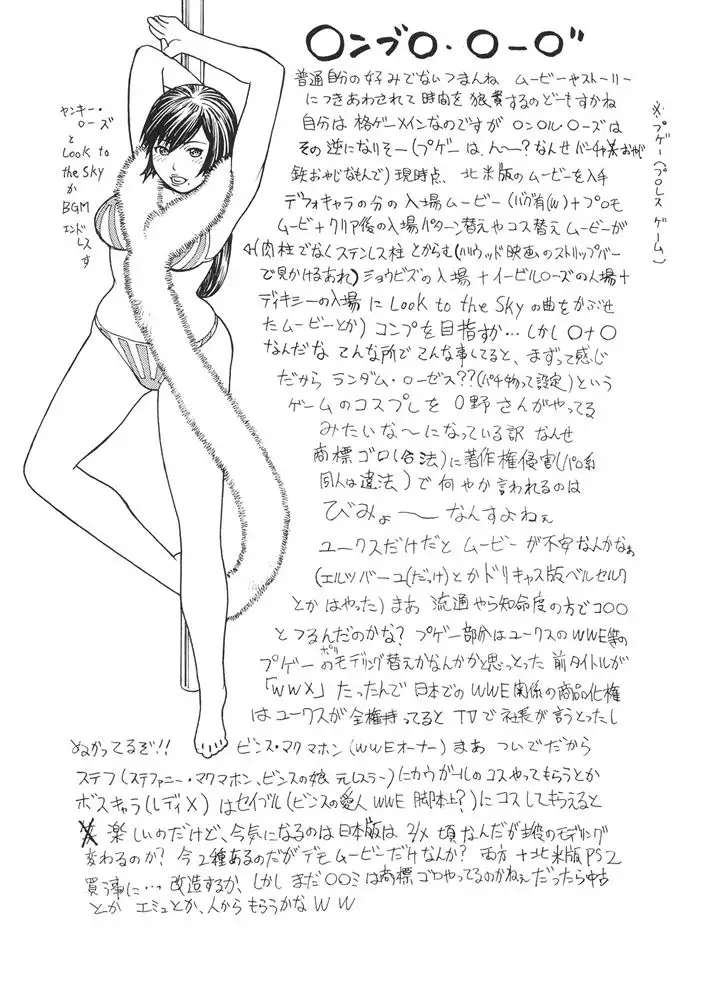 〇ンブ〇・〇ー〇"
普通自分の好みでないつまんね ムービーやストーリー
につきあわされて時間を浪費するのどーもすかね
自分は格ゲーメインなのですが 〇ン〇ル〇ーズは
その逆になりそー(プゲーは、ん〜?なんせバーチャ
鉄おやじなもんで)現時点、北米版のムービーを入手
デフォキャラの分の入場ムービー(バグ有(w)+プロモ
ムービ+クリア後の入場パターン替えやコス替えムービーが
(肉柱でなくステンレス柱とからむ(ハリウッド映画のストリップバー
で見かけるあれ)ショウビズの入場+イービルローズの入場+
ディキシーの入場にLook to the Skyの曲をかぶせ
たムービーとか)コンプを目指すか…しかし〇ナ〇
なんだな てんな所でてんな事してると、まずって感じ
だから ランダム・ローゼス??(パチ物って設定)という
ゲームのコスプレを 〇野さんがやってる
みたいな〜になっている訳 なんせ
商標ゴロ(合法)に著作権侵害(パロ系
同人は違法)で何やか言われるのは
びみょ〜なんすよねぇ
ユークスだけだと ムービーが不安なんかなぁ
(エルツバーユ(だっけ)とかドリキャス版ベルセルク
とかはやった)まあ 流通やら知命度の方でコ〇〇
とつるんだのかな? プゲー部分はユークスのWWE等の
プゲーのモデリング替えかなんかと思っとった 前タイトルが
ポリ
「WWX」たったんで日本でのWWE関係の商品化権
はユークスが全権持ってるとTVで社長が言うとったし
ぬかってるぞ!! ビンス・マクマホン(WWEオーナー)まあついでだから
ステフ(ステファニー・マクマホン、ビンスの娘 元レスラー)にカウガールのコスやってもらうとか
ボスキャラ(レディX)はセイブル(ビンスの愛人WWE脚本上?)にコスしてもらえると
楽しいのだけど、今気になるのは日本版は2/X頃なんだが主役のモデリング
変わるのか? 今2種あるのだがデモムービーだけなんか? 両方+北米版PS2
買う事に…改造するか、しかしまだ〇〇ミは商標ゴロやってるのかねぇだったら中古
とか エミュとか、人からもらうかなWW
ヤンキー・
ローズ
と
Look to
the Sky
か
BGM
エンドレス
す
※プゲー(プロレスゲーム)